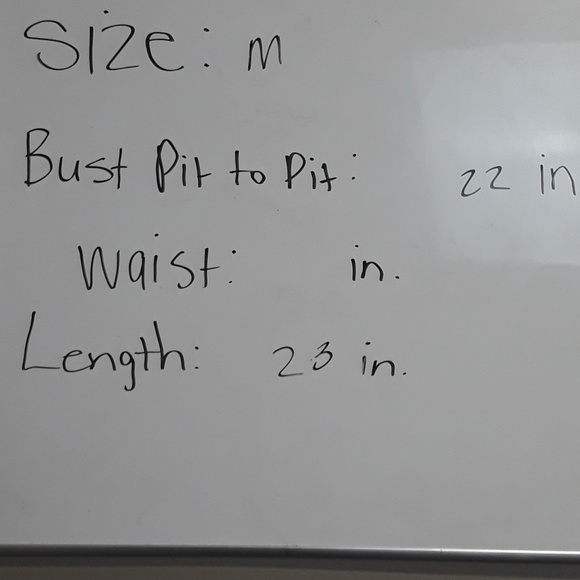 Size: m
Bust Pit to Pit: 22 in
Waist: in.
Length: 23 in.